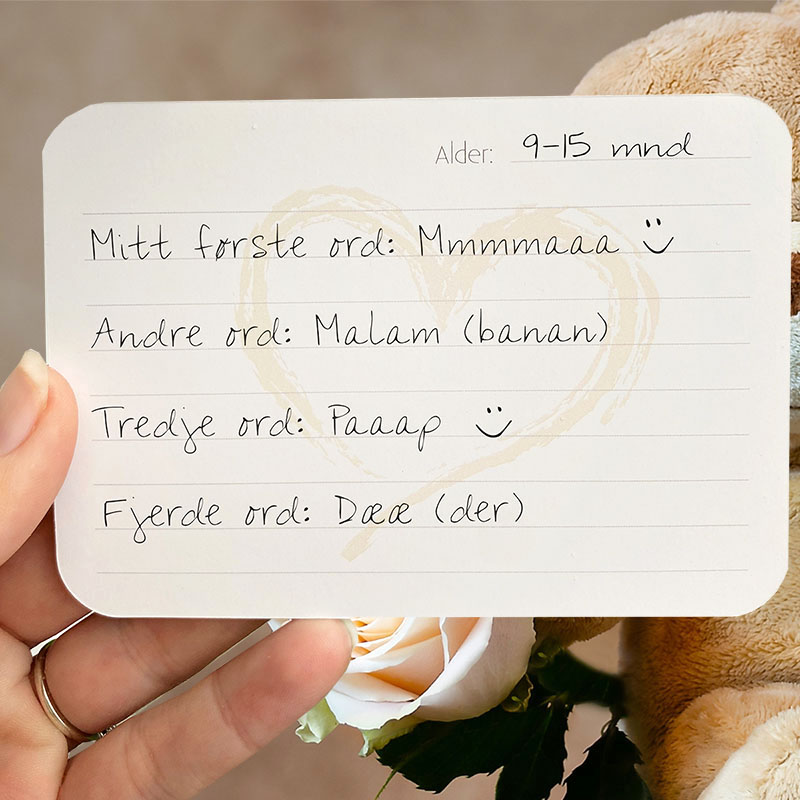 Alder: 9-15 mnd
Mitt første ord: Mmmmaaa
Andre ord: Malam (banan)
Tredje ord: Paaap
Fjerde ord: Dææ (der)